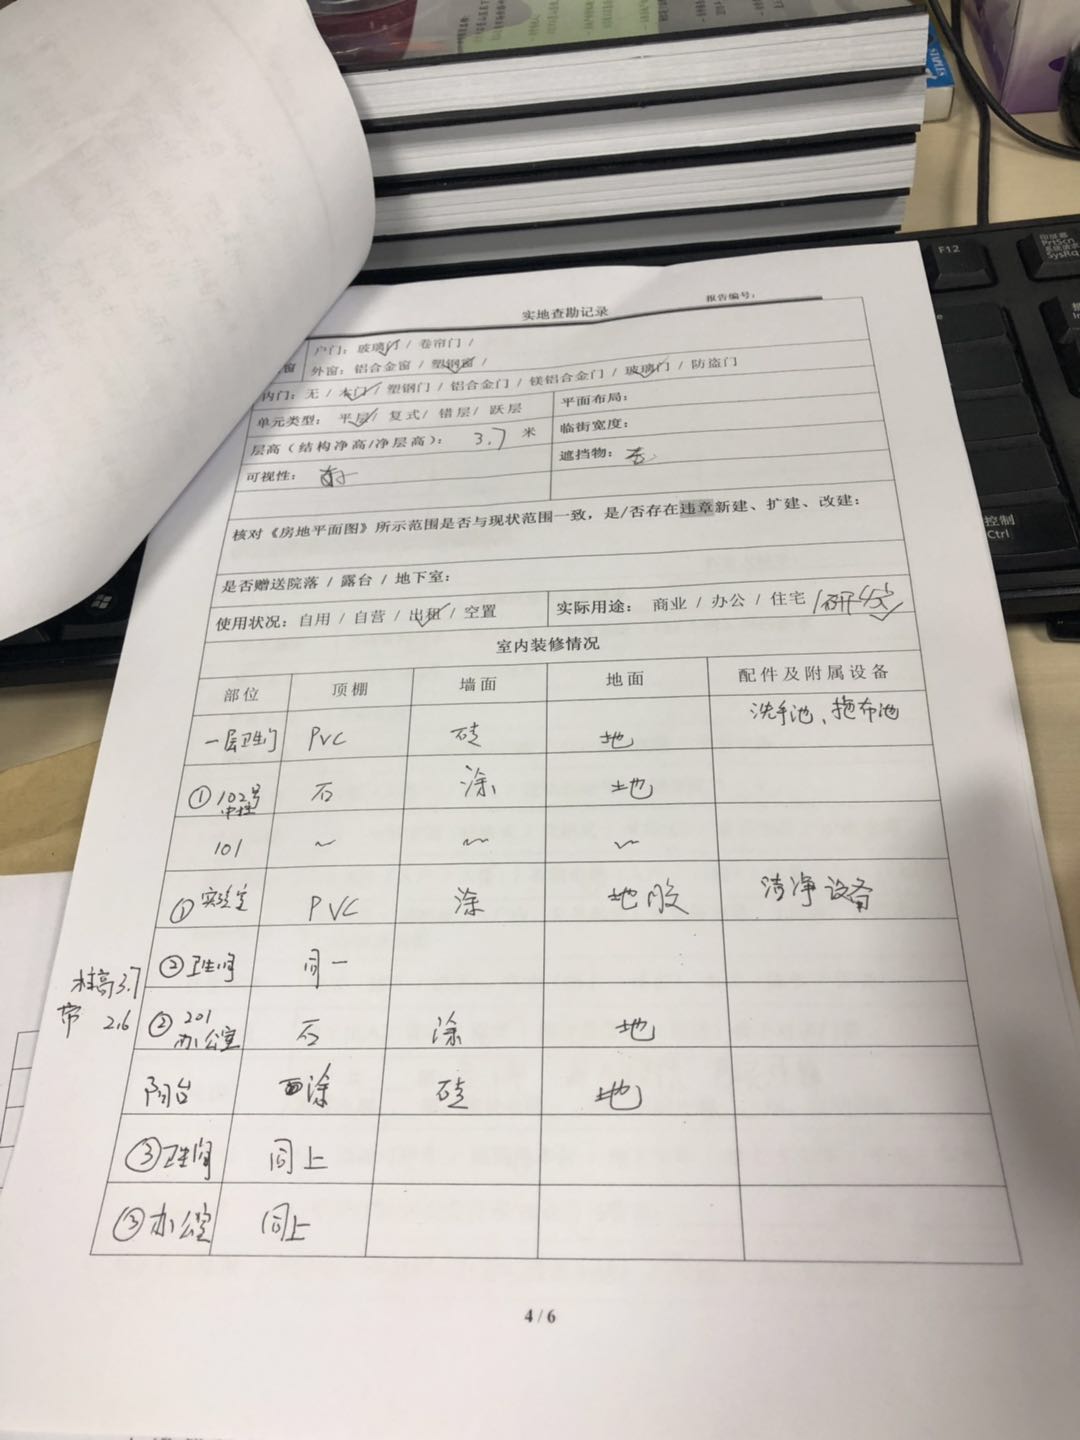 报告编号：
实地查勘记录
户门：玻璃门 / 卷帘门 /
窗 外窗：铝合金窗 / 塑钢窗 /
内门：无 / 木门 / 塑钢门 / 铝合金门 / 镁铝合金门 / 玻璃门 / 防盗门
单元类型：平层 / 复式 / 错层 / 跃层 平面布局：
层高（结构净高/净层高）：3.7 米 临街宽度：
可视性：好 遮挡物：否
核对《房地平面图》所示范围是否与现状范围一致，是/否存在违章新建、扩建、改建：
是否赠送院落 / 露台 / 地下室：
使用状况：自用 / 自营 / 出租 / 空置 实际用途：商业 / 办公 / 住宅 /研发
室内装修情况
部位 顶棚 墙面 地面 配件及附属设备
一层卫生间 PVC 砖 地 洗手池、拖布池
① 102号 石 涂 地
101 ~ ~ ~
① 实验室 PVC 涂 地胶 洁净设备
② 卫生间 同一
② 201 办公室 石 涂 地
阳台 涂 砖 地
③ 卫生间 同上
③ 办公室 同上
高3.7
2.6
4 / 6
F12
PrtScn
SysRq
控制
Ctrl